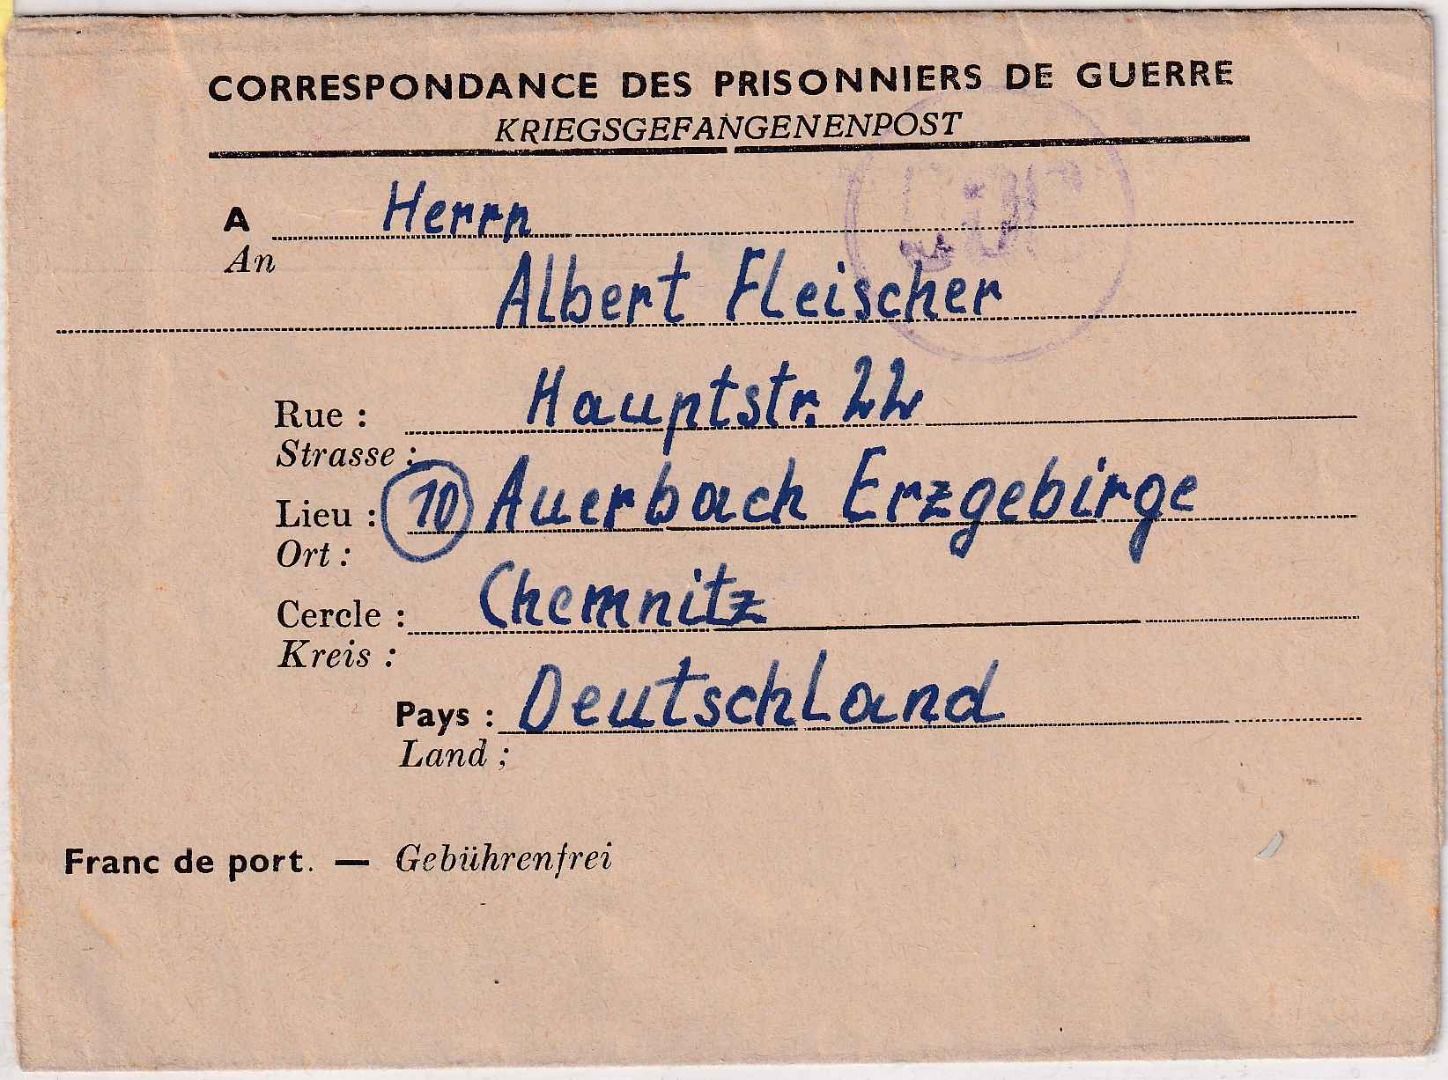 CORRESPONDANCE DES PRISONNIERS DE GUERRE
KRIEGSGEFANGENENPOST
A Herrn
An
Albert Fleischer
Rue : Hauptstr. 22
Strasse :
Lieu : 10 Auerbach Erzgebirge
Ort :
Cercle : Chemnitz
Kreis :
Pays : Deutschland
Land ;
Franc de port. — Gebührenfrei